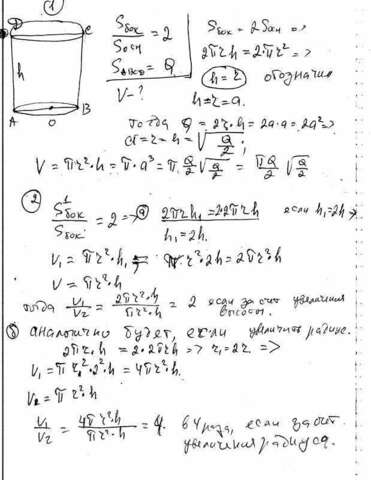 ①
D C
h
A O B
Sбок / Sосн = 2
S_ABCD = Q
V - ?
Sбок = 2 Sосн =>
2πrh = 2·πr² =>
h = r обозначим
h = r = a.
тогда Q = 2r·h = 2a·a = 2a² =>
a = r = h = √(Q/2);
V = πr²·h = π·a³ = π Q/2 √(Q/2) = πQ/2 √(Q/2)
②
S¹бок / Sбок = 2 => ⓐ 2πrh₁ = 2·2πrh если h₁ = 2h =>
h₁ = 2h.
V₁ = πr²·h₁ = πr²·2h = 2πr²h
V = πr²·h
тогда V₁/V₂ = 2πr²·h / πr²·h = 2 если за счет увеличения
высоты.
ⓑ аналогично будет, если увеличить радиус.
2πr₁·h = 2·2πrh => r₁ = 2r =>
V₁ = πr²·2²·h = 4πr²·h.
V₂ = πr²·h
V₁/V₂ = 4πr²·h / πr²·h = 4. в 4 раза, если за счет
увеличения радиуса.